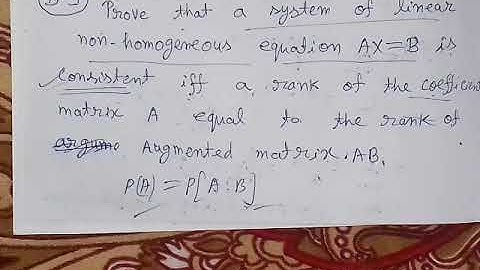 Prove that a system of linear
non-homogeneous equation AX=B is
consistent iff a rank of the coefficient
matrix A equal to the rank of
Augmented matrix. AB.
P(A) = P[A:B]